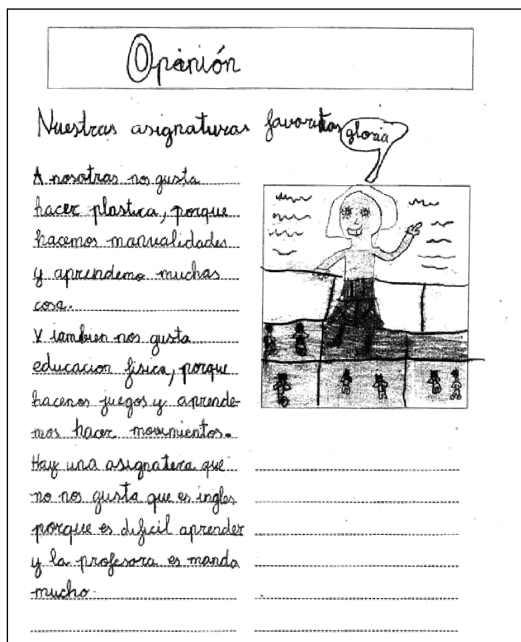 Opinión
Nuestras asignaturas favoritas
gloria
A nosotras nos gusta
hacer plastica, porque
hacemos manualidades
y aprendemo muchas
cosa.
Y iambien nos gusta
educacion fisica, porque
hacenos juegos y aprende-
mos hacer movimientos.
Hay una asignatera que
no nos gusta que es ingles
porque es dificil aprender
y la profesora es manda
mucho.